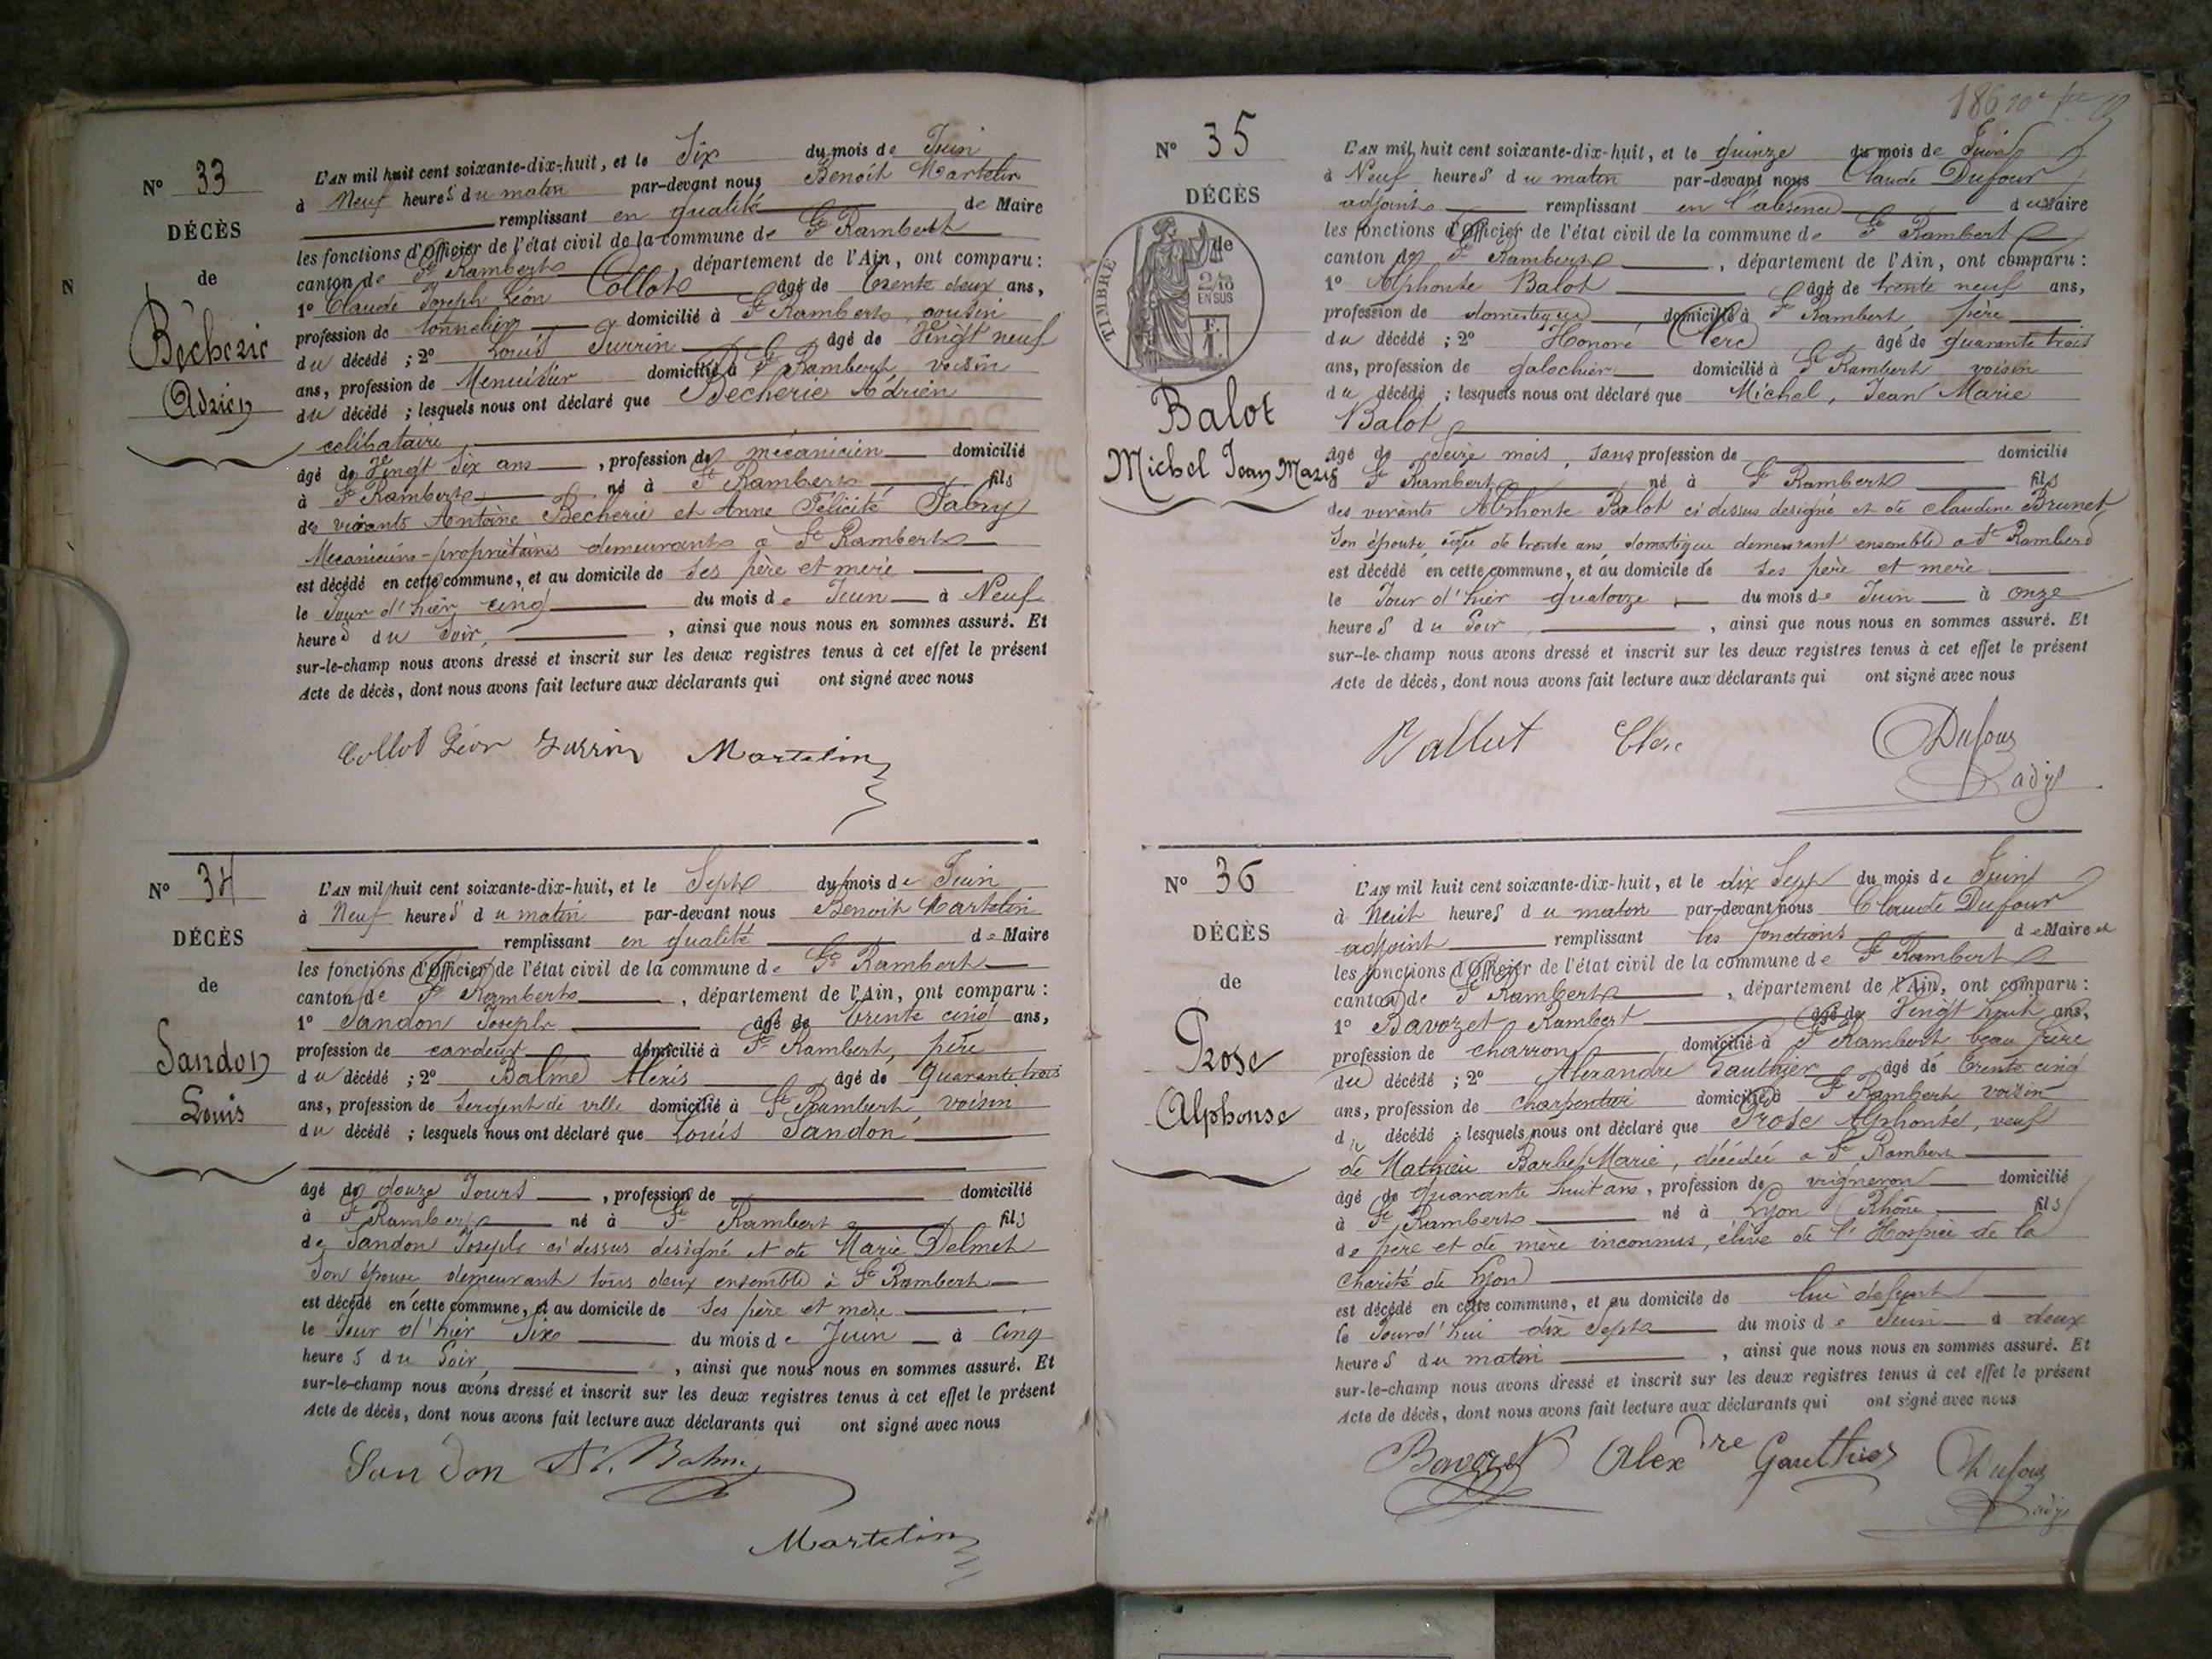 N
Nº 33
DÉCÈS
de
Bécherie
Adrien
L'AN mil huit cent soixante-dix-huit, et le Six du mois de Juin
à Neuf heures du matin par-devant nous Benoit Martelin
remplissant en qualité de Maire
les fonctions d'Officier de l'état civil de la commune de St Rambert
canton de St Rambert, département de l'Ain, ont comparu :
1º Claude Joseph Léon Collot âgé de trente deux ans,
profession de tonnelier domicilié à St Rambert, cousin
du décédé ; 2º Louis Jurrin âgé de Vingt neuf
ans, profession de Menuisier domicilié à St Rambert, voisin
du décédé ; lesquels nous ont déclaré que Bécherie Adrien
celibataire
âgé de Vingt Six ans, profession de mécanicien domicilié
à St Rambert né à St Rambert fils
de vivants Antoine Bécherie et Anne Félicité Fabry
Mecaniciens-propriétaires demeurants à St Rambert
est décédé en cette commune, et au domicile de ses père et mère
le Jour d'hier cinq du mois de Juin à Neuf
heures du Soir, , ainsi que nous nous en sommes assuré. Et
sur-le-champ nous avons dressé et inscrit sur les deux registres tenus à cet effet le présent
Acte de décès, dont nous avons fait lecture aux déclarants qui ont signé avec nous
Collot Léon Jurrin Martelin
Nº 34
DÉCÈS
de
Sandon
Louis
L'AN mil huit cent soixante-dix-huit, et le Sept du mois de Juin
à Neuf heures du matin par-devant nous Benoit Martelin
remplissant en qualité de Maire
les fonctions d'Officier de l'état civil de la commune de St Rambert
canton de St Rambert, département de l'Ain, ont comparu :
1º Sandon Joseph âgé de trente cinq ans,
profession de cardeur domicilié à St Rambert, père
du décédé ; 2º Balme Alexis âgé de Quarante trois
ans, profession de Sergent de ville domicilié à St Rambert, voisin
du décédé ; lesquels nous ont déclaré que Louis Sandon
âgé de douze Jours, profession de domicilié
à St Rambert né à St Rambert fils
de Sandon Joseph ci dessus designé et de Marie Delmet
Son épouse demeurant tous deux ensemble à St Rambert
est décédé en cette commune, et au domicile de ses père et mère
le Jour d'hier Six du mois de Juin à Cinq
heures du Soir, , ainsi que nous nous en sommes assuré. Et
sur-le-champ nous avons dressé et inscrit sur les deux registres tenus à cet effet le présent
Acte de décès, dont nous avons fait lecture aux déclarants qui ont signé avec nous
Sandon
Martelin
Nº 35
DÉCÈS
de
TIMBRE
2/10
EN SUS
Balot
Michel Jean Marie
L'AN mil huit cent soixante-dix-huit, et le quinze du mois de Juin
à Neuf heures du matin par-devant nous Claude Dufour
adjoint remplissant en l'absence du Maire
les fonctions d'Officier de l'état civil de la commune de St Rambert
canton de St Rambert, département de l'Ain, ont comparu :
1º Alphonse Balot âgé de trente neuf ans,
profession de domestique domicilié à St Rambert père
du décédé ; 2º Honoré Clerc âgé de quarante trois
ans, profession de galochier domicilié à St Rambert voisin
du décédé ; lesquels nous ont déclaré que Michel, Jean Marie
Balot
âgé de Seize mois, Sans profession de domicilié
St Rambert né à St Rambert fils
des vivants Alphonse Balot ci dessus designé et de Claudine Brunet
Son épouse, âgée de trente ans, domestique demeurant ensemble à St Rambert
est décédé en cette commune, et au domicile de ses père et mère
le Jour d'hier quatorze du mois de Juin à onze
heures du Soir, , ainsi que nous nous en sommes assuré. Et
sur-le-champ nous avons dressé et inscrit sur les deux registres tenus à cet effet le présent
Acte de décès, dont nous avons fait lecture aux déclarants qui ont signé avec nous
Ballut Clerc Dufour
adj
Nº 36
DÉCÈS
de
Prose
Alphonse
L'AN mil huit cent soixante-dix-huit, et le dix Sept du mois de Juin
à Neuf heures du matin par-devant nous Claude Dufour
adjoint remplissant les fonctions de Maire et
les fonctions d'Officier de l'état civil de la commune de St Rambert
canton de St Rambert, département de l'Ain, ont comparu :
1º Bavozet Rambert âgé de Vingt huit ans,
profession de charron domicilié à St Rambert beau frère
du décédé ; 2º Alexandre Gauthier âgé de trente cinq
ans, profession de charpentier domicilié à St Rambert voisin
du décédé ; lesquels nous ont déclaré que Prose Alphonse, veuf
de Mathieu Barbe Marie, décédée à St Rambert
âgé de quarante huit ans, profession de vigneron domicilié
à St Rambert né à Lyon Rhône fils
de père et de mère inconnus, élève de l'Hospice de la
charité de Lyon
est décédé en cette commune, et au domicile de lui defunt
le Jourd'hui dix Sept du mois de Juin à deux
heures du matin, ainsi que nous nous en sommes assuré. Et
sur-le-champ nous avons dressé et inscrit sur les deux registres tenus à cet effet le présent
Acte de décès, dont nous avons fait lecture aux déclarants qui ont signé avec nous
Bavozet Alexdre Gauthier Dufour
adj